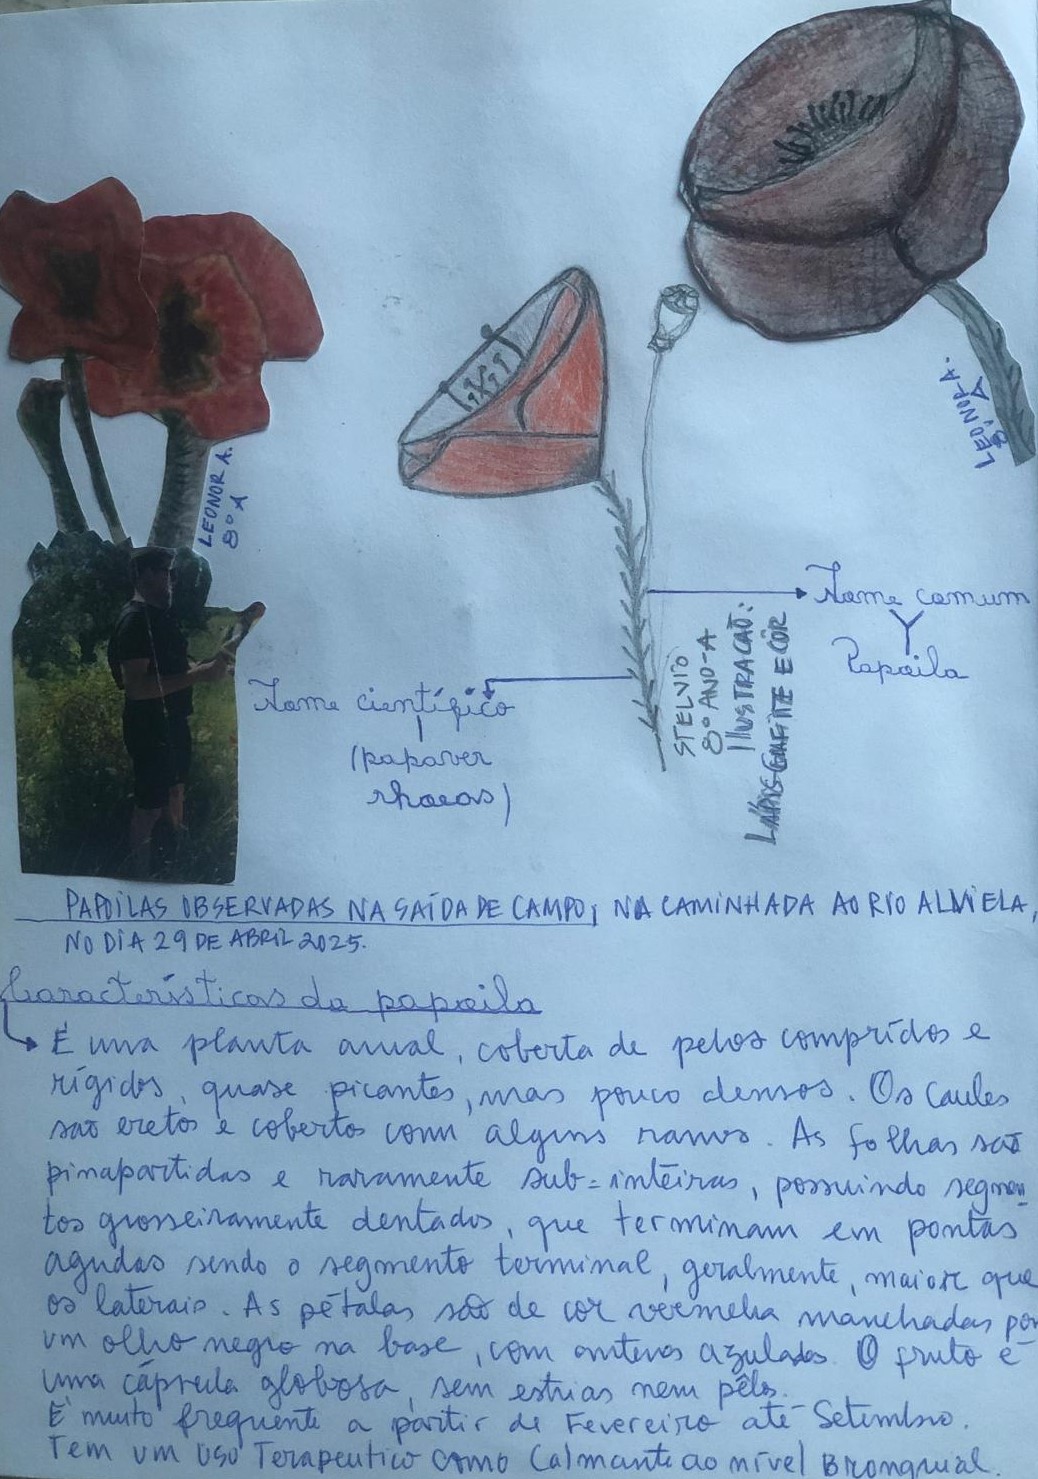 LEONOR A.
8º A
LEONOR A.
8º A
Nome comum
Papoila
STELVIO
8º ANO-A
IlUSTRAÇÃO:
LÁPIS GRAFITE E CÔR
Nome científico
(papaver
rhoeas)
PAPOILAS OBSERVADAS NA SAÍDA DE CAMPO, NA CAMINHADA AO RIO ALVIELA,
NO DIA 29 DE ABRIL 2025.
Características da papoila
É uma planta anual, coberta de pelos compridos e
rígidos, quase picantes, mas pouco densos. Os caules
são eretos e cobertos com alguns ramos. As folhas são
pinapartidas e raramente sub=inteiras, possuindo segmen-
tos grosseiramente dentados, que terminam em pontas
agudas sendo o segmento terminal, geralmente, maior que
os laterais. As pétalas são de cor vermelha manchadas por
um olho negro na base, com anteras azuladas. O fruto é
uma cápsula globosa, sem estrias nem pêlos.
É muito frequente a partir de Fevereiro até Setembro.
Tem um uso Terapeutico como Calmante ao nível Bronquial.